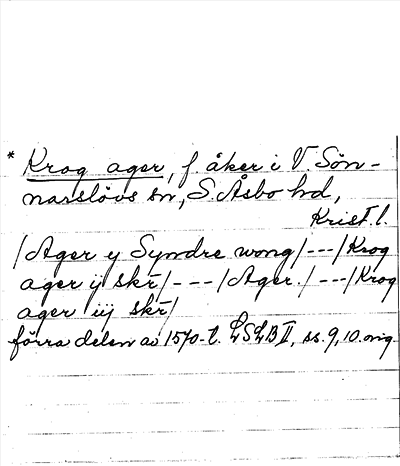 * Krog ager, f. åker i V. Sön-
narslövs sn, S. Åsbo hd,
Krist. l.
/Ager y Syndre wong/---/Krog
ager ij skr̄/---/Ager./---/Krog
ager iij skr̄/
förra delen av 1570-t. LSLB II, ss. 9, 10. orig.